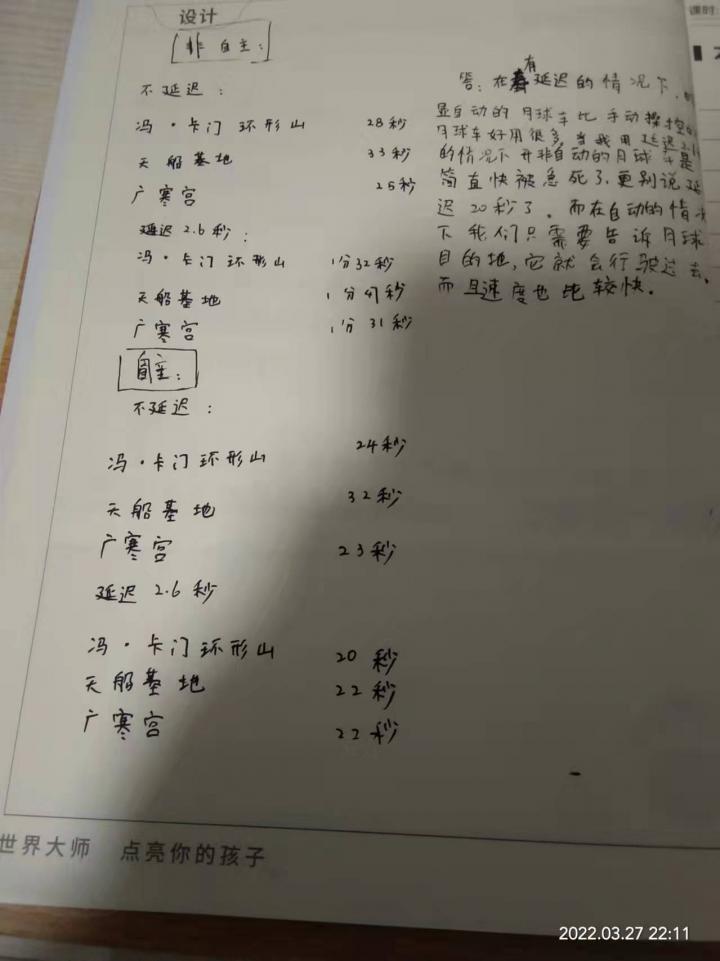 设计
课时:
非自主:
不延迟:
冯·卡门环形山 28秒
天船基地 33秒
广寒宫 25秒
延迟2.6秒:
冯·卡门环形山 1分32秒
天船基地 1分47秒
广寒宫 1分31秒
自主:
不延迟:
冯·卡门环形山 24秒
天船基地 32秒
广寒宫 23秒
延迟2.6秒
冯·卡门环形山 20秒
天船基地 22秒
广寒宫 22秒
答:在有延迟的情况下,明
显自动的月球车比手动操控的
月球车好用很多,当我用延迟2.6
的情况下开非自动的月球车是
简直快被急死了,更别说延
迟20秒了。而在自动的情况
下我们只需要告诉月球
目的地,它就会行驶过去,
而且速度也比较快.
世界大师 点亮你的孩子
2022.03.27 22:11